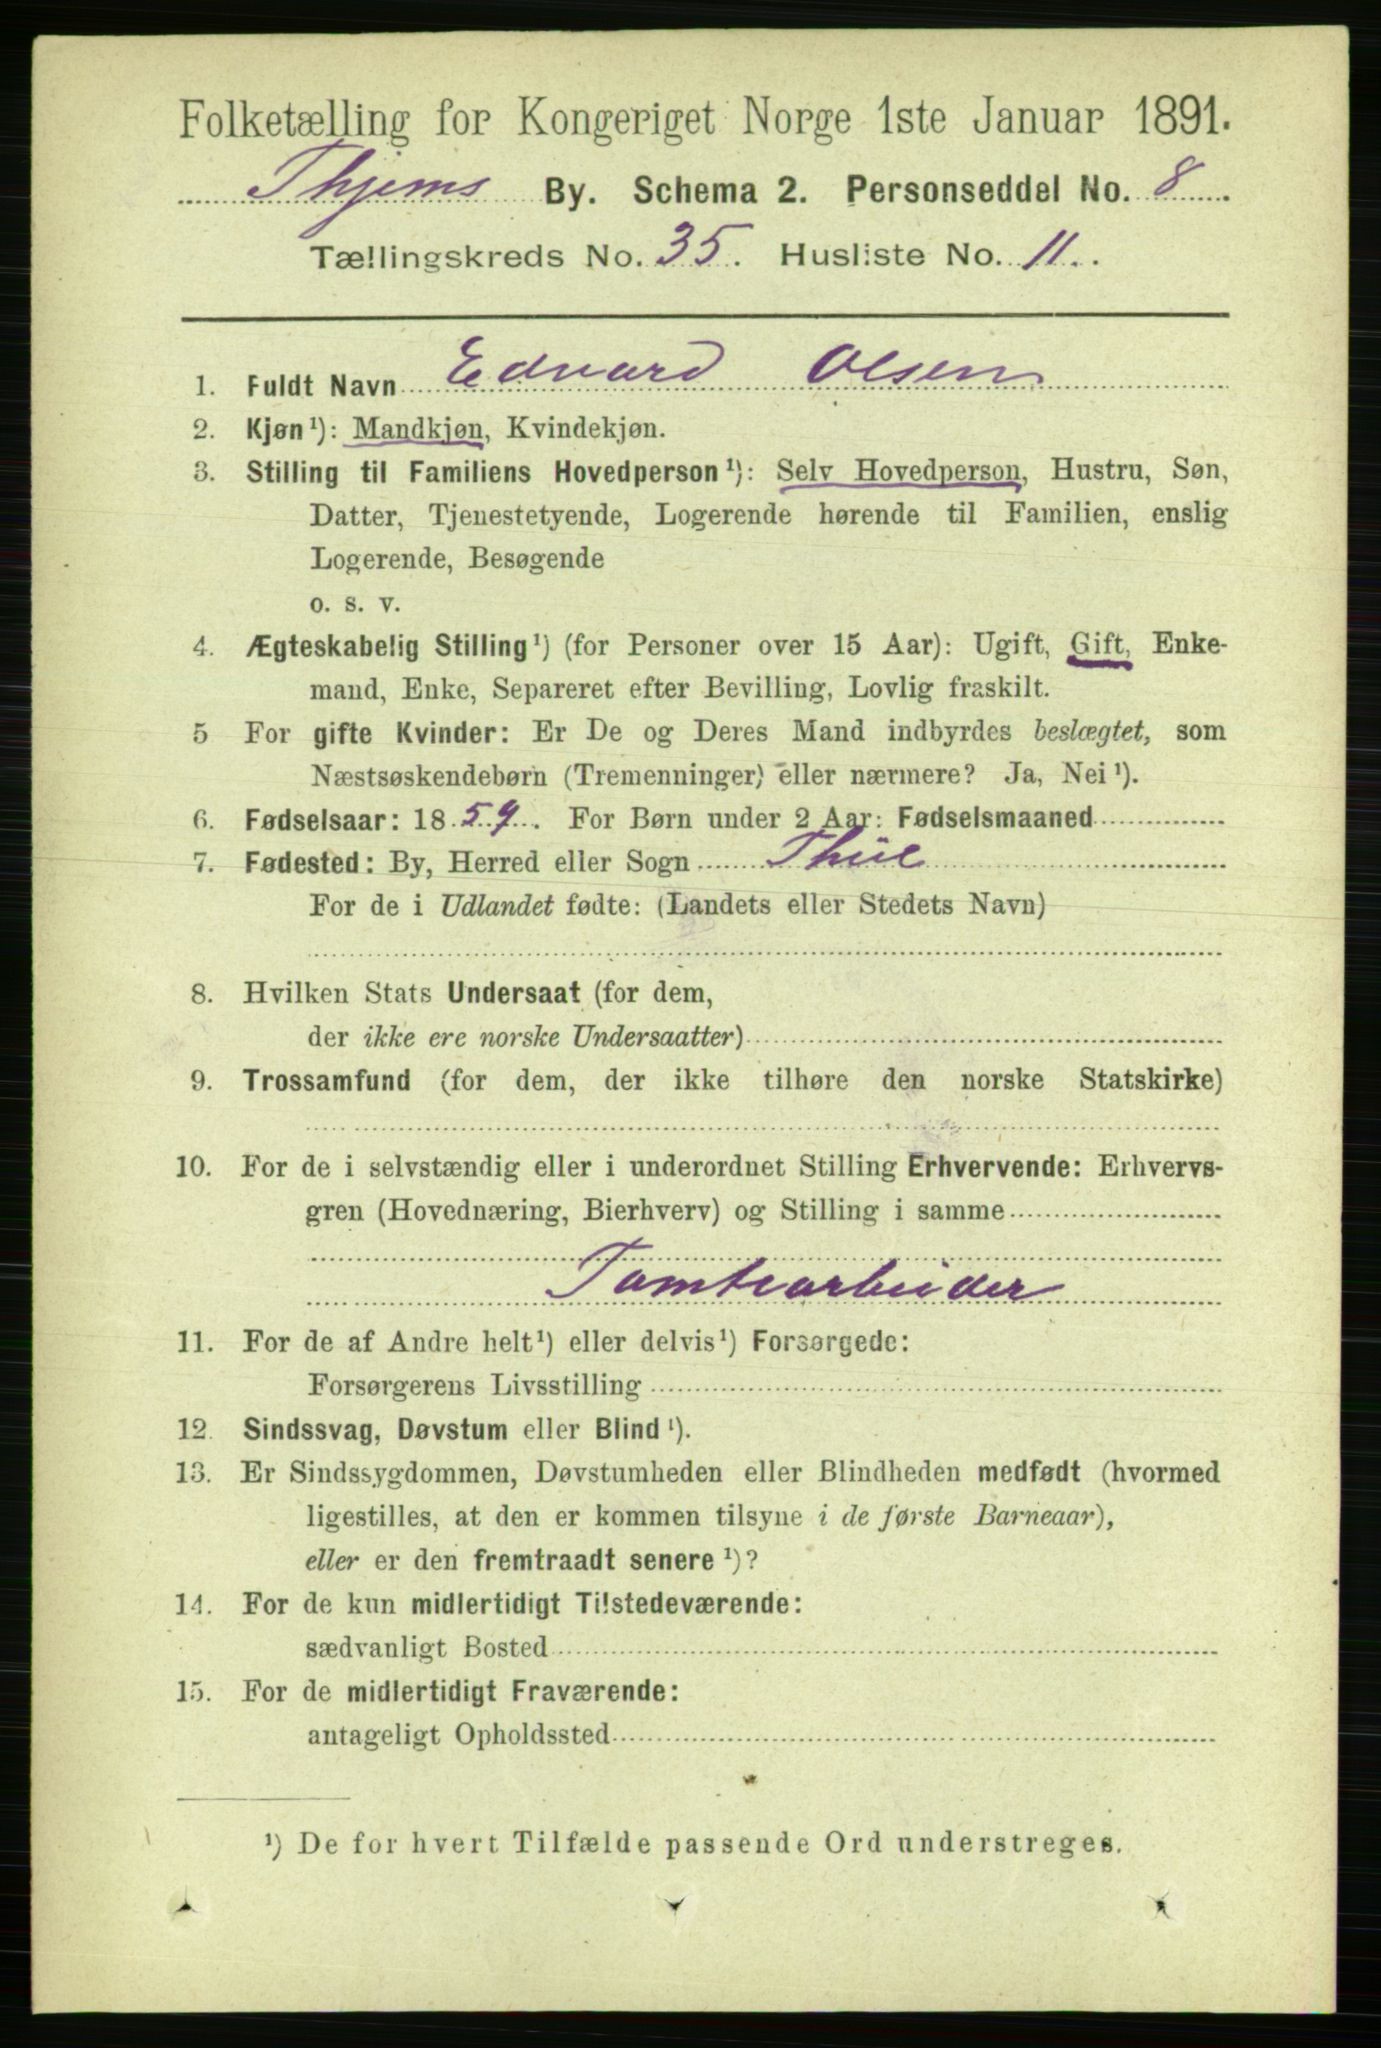 Folketælling for Kongeriget Norge 1ste Januar 1891.
Thjems By. Schema 2. Personseddel No. 8
Tællingskreds No. 35. Husliste No. 11.
1. Fuldt Navn Edvard Olsen
2. Kjøn¹): Mandkjøn, Kvindekjøn.
3. Stilling til Familiens Hovedperson¹): Selv Hovedperson, Hustru, Søn,
Datter, Tjenestetyende, Logerende hørende til Familien, enslig
Logerende, Besøgende
o. s. v.
4. Ægteskabelig Stilling¹) (for Personer over 15 Aar): Ugift, Gift, Enke-
mand, Enke, Separeret efter Bevilling, Lovlig fraskilt.
5 For gifte Kvinder: Er De og Deres Mand indbyrdes beslægtet, som
Næstsøskendebørn (Tremenninger) eller nærmere? Ja, Nei¹).
6. Fødselsaar: 1859. For Børn under 2 Aar: Fødselsmaaned
7. Fødested: By, Herred eller Sogn
For de i Udlandet fødte: (Landets eller Stedets Navn)
8. Hvilken Stats Undersaat (for dem,
der ikke ere norske Undersaatter)
9. Trossamfund (for dem, der ikke tilhøre den norske Statskirke)
10. For de i selvstændig eller i underordnet Stilling Erhvervende: Erhvervs-
gren (Hovednæring, Bierhverv) og Stilling i samme
Tomtearbeider
11. For de af Andre helt¹) eller delvis¹) Forsørgede:
Forsørgerens Livsstilling
12. Sindssvag, Døvstum eller Blind¹).
13. Er Sindssygdommen, Døvstumheden eller Blindheden medfødt (hvormed
ligestilles, at den er kommen tilsyne i de første Barneaar),
eller er den fremtraadt senere¹)?
14. For de kun midlertidigt Tilstedeværende:
sædvanligt Bosted
15. For de midlertidigt Fraværende:
antageligt Opholdssted
¹) De for hvert Tilfælde passende Ord understreges.